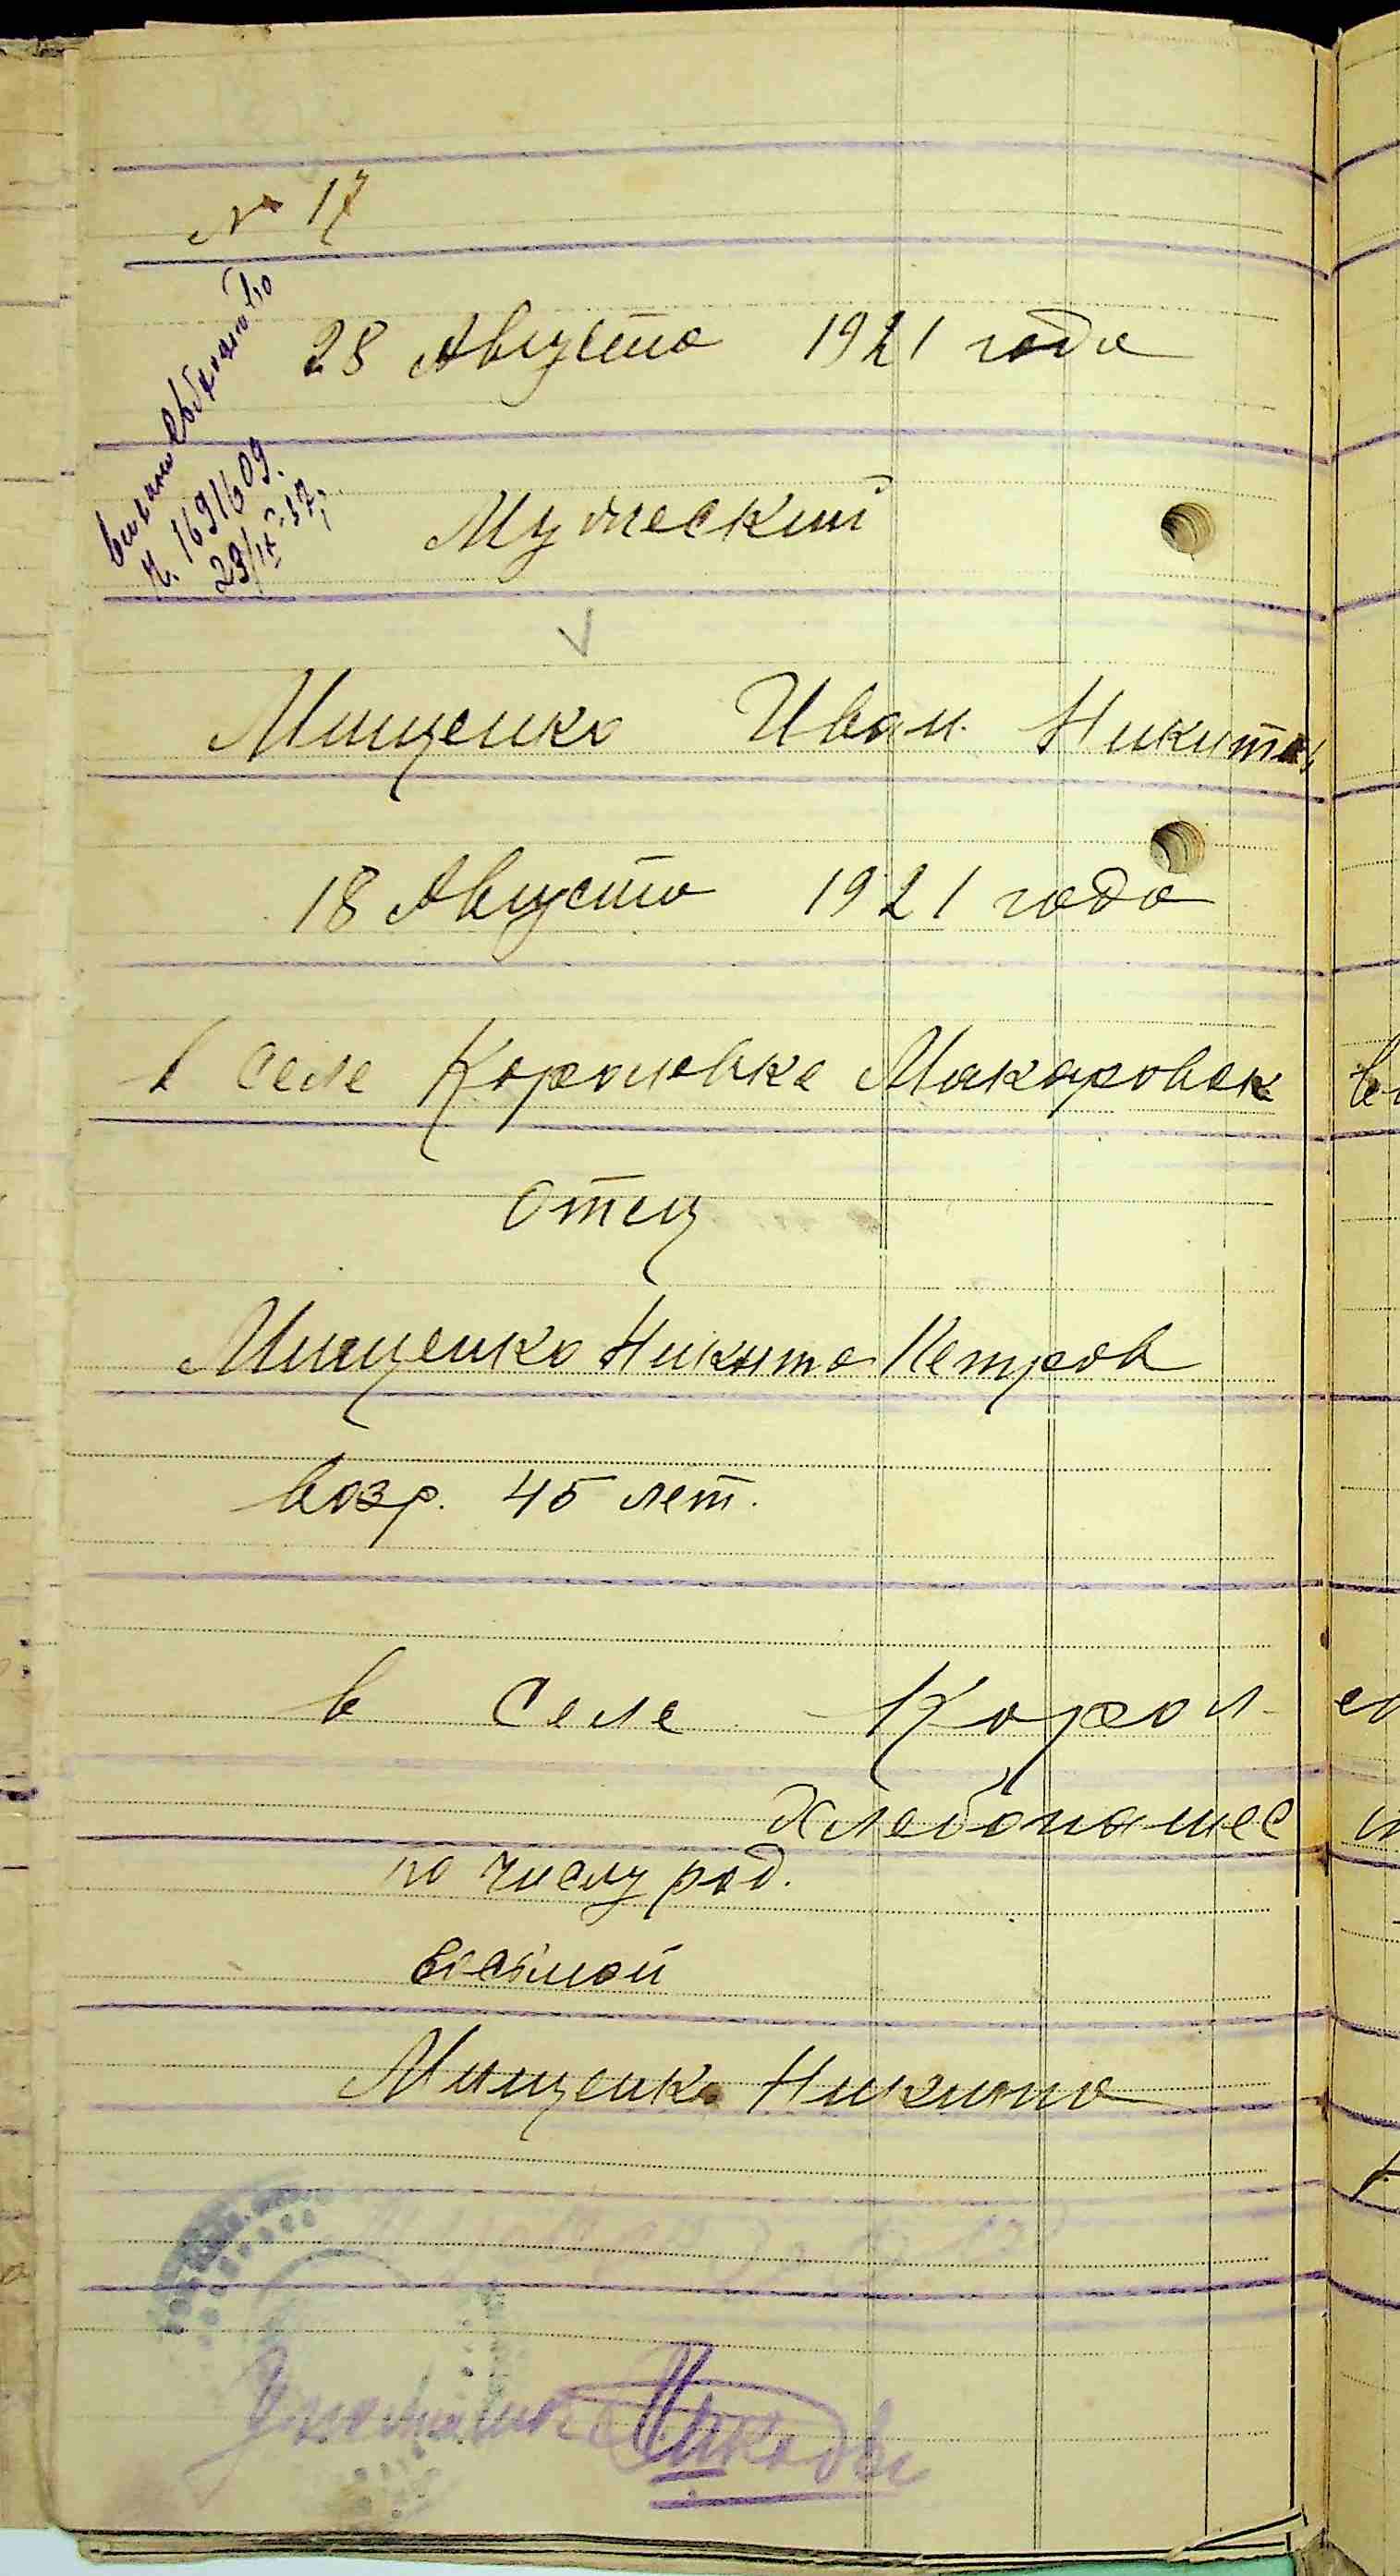 № 17
видано свідоцтво
N. 1691609.
29/IX-37
28 Августа 1921 года
Мужеский
Мищенко Иван Никитов
18 Августа 1921 года
в селе Королевке Макаровск
Отец
Мищенко Никита Петров
возр. 45 лет.
в селе Корол
Хлебопашес
по числу род.
восьмой
Мищенко Никита